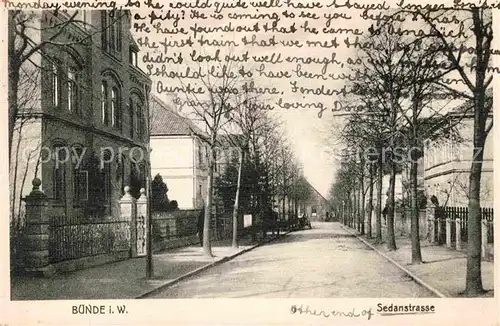 monday evening. So he could quite well have stayed longer
pity! He is coming to see you before
We have found out that he came along
the first train that we met though
didn't look out well enough, so
I should like to have been with
Auntie
was there. Tenderest
your loving Dora.
BÜNDE i. W.
Other end of Sedanstrasse